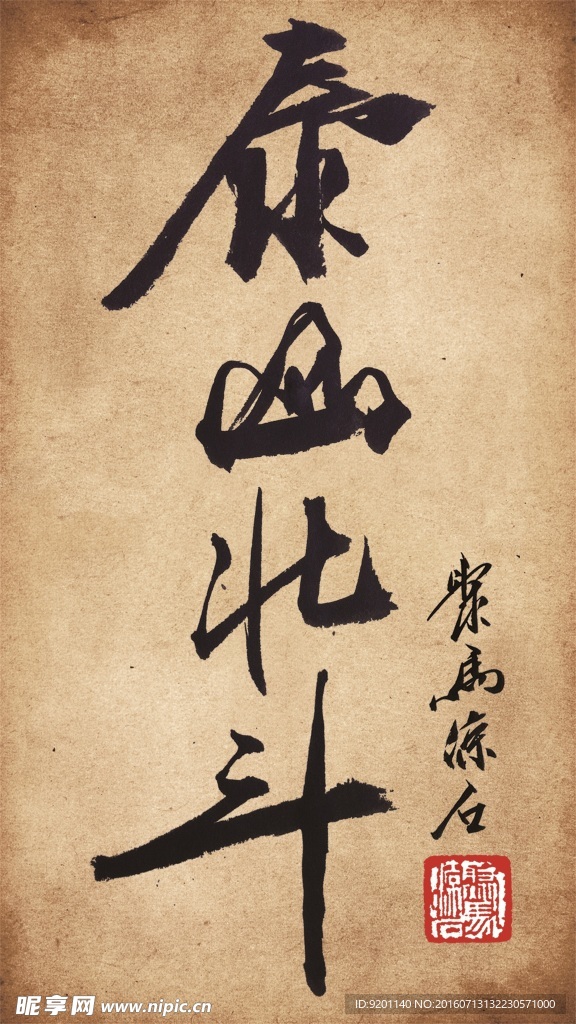 泰山北斗
聚马凉石
昵享网 www.nipic.cn
ID:9201140 NO:20160713132230571000